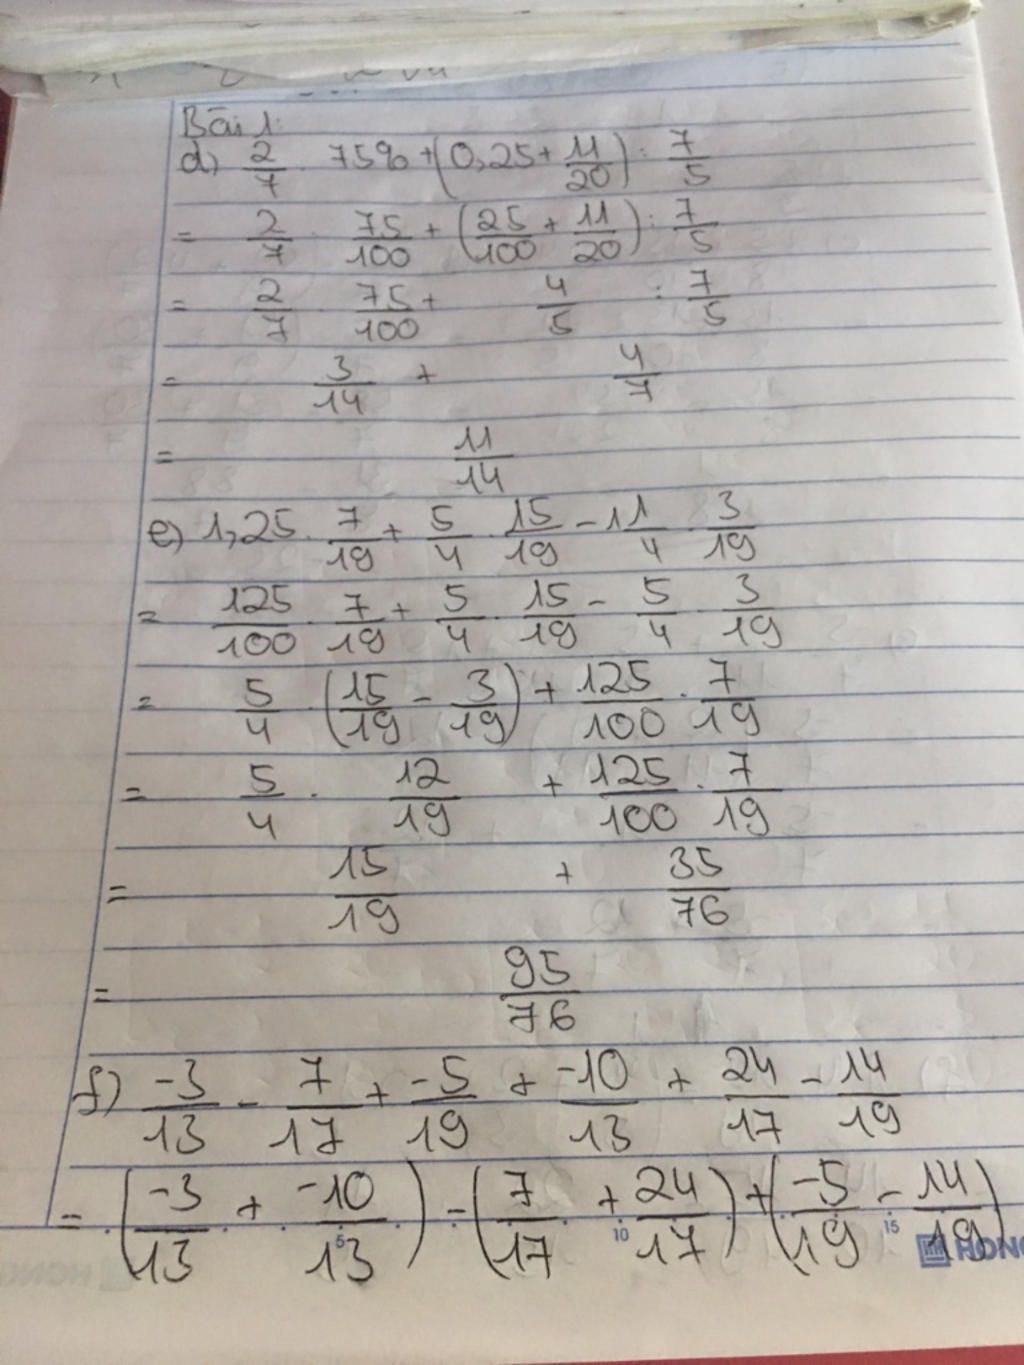 Bài 1:
d) 2/7 . 75% + (0,25 + 11/20) : 7/5
= 2/7 . 75/100 + (25/100 + 11/20) : 7/5
= 2/7 75/100 + 4/5 : 7/5
= 3/14 + 4/7
= 11/14
e) 1,25 . 7/19 + 5/4 . 15/19 - 1 1/4 . 3/19
= 125/100 . 7/19 + 5/4 . 15/19 - 5/4 . 3/19
= 5/4 . (15/19 - 3/19) + 125/100 . 7/19
= 5/4 . 12/19 + 125/100 . 7/19
= 15/19 + 35/76
= 95/76
f) -3/13 - 7/17 + -5/19 + -10/13 + 24/17 - 14/19
= (-3/13 + -10/13) - (7/17 + 24/17) + (-5/19 - 14/19)
5 10 15